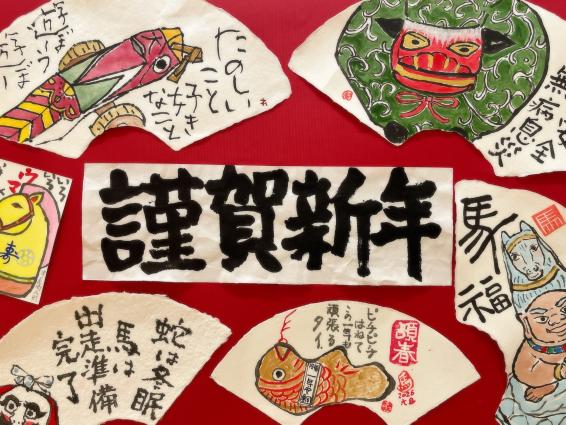 たのしい
こと
好きなこと
遊ぼう
無病息災
謹賀新年
ウマ
寿
馬福
蛇は冬眠
馬は
出走準備
完了
頌春
ピチピチ
はねて
この一年も
頑張る
タイ
2026